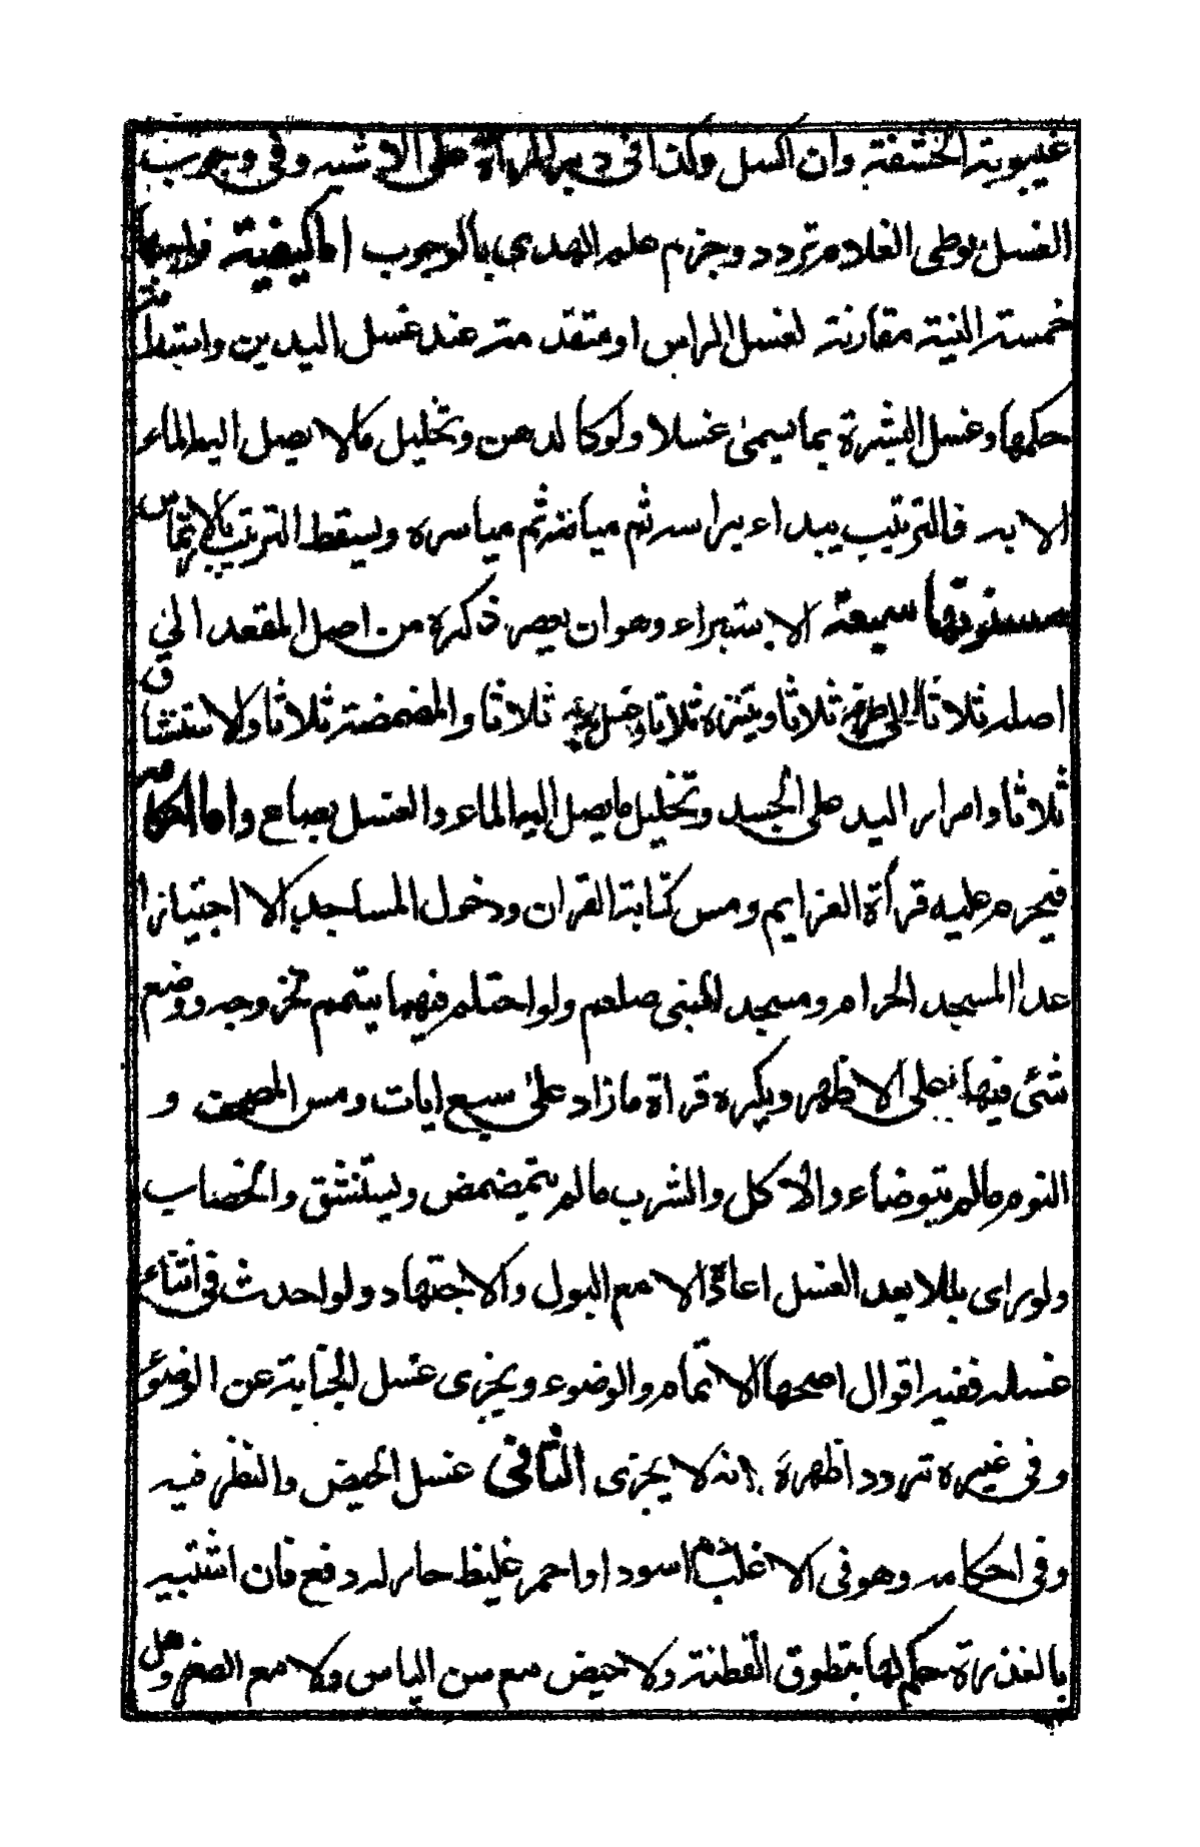 غيبوبة الحشفة وان اكسل وكذا فى دبر المرأة على الاشبه وفى وجوب
الغسل بوطى الغلام تردد وجزم علم الهدى بالوجوب اما كيفيته فواجبها
خمسة النية مقارنة لغسل الراس او متقدمة عند غسل اليدين واستدامة
حكمها وغسل البشرة بما يسمى غسلا ولو كالدهن وتخليل مالا يصل اليه الماء
الا به فالترتيب يبداء براسه ثم ميامنه ثم مياسره ويسقط الترتيب بالارتماس
مسنونها سبعة الاستبراء وهو ان يعصر ذكره من اصل المقعد الى
اصله ثلاثا ثلاثا وينتره ثلاثا وغسل يديه ثلاثا والمضمضة ثلاثا والاستنشاق
ثلاثا وامرار اليد على الجسد وتخليل ما يصل اليه الماء والغسل بصاع واما احكامه
فيحرم عليه قرأة العزايم ومس كتابة القران ودخول المساجد الا اجتيازا
عدا المسجد الحرام ومسجد النبى صلعم ولو احتلم فيهما يتمم لخروجه ووضع
شئى فيها على الاظهر ويكره قراة مازاد على سبع ايات ومس المصحف و
النوم مالم يتوضاء والاكل والشرب مالم يتمضمض ويستنشق والخضاب
ولو راى بللا بعد الغسل اعاد الا مع البول والاجتهاد ولو احدث فى اثناء
غسله ففيه اقوال اصحها الاتمام والوضوء ويجزى غسل الجنابة عن الوضوء
وفى غيره تردد اظهره انه لا يجزى الثانى غسل الحيض والنظر فيه
وفى احكامه وهو فى الاغلب دم اسود او احمر غليظ حار له دفع فان اشتبه
بالعذرة حكم لها بتطوق القطنة ولا حيض مع سن الياس ولا مع الصغر وهل